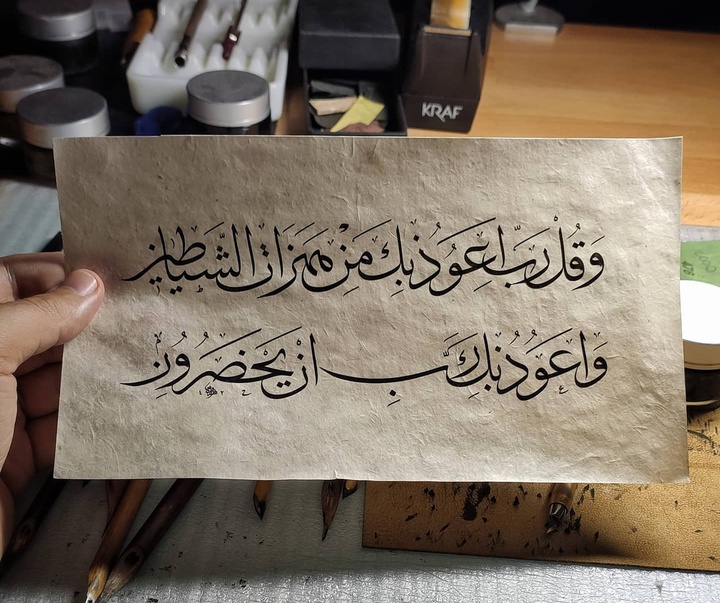 KRAF
وَقُلْ رَبِّ اَعُوذُ بِكَ مِنْ هَمَزَاتِ الشَّيَاطٖينِ
وَاَعُوذُ بِكَ رَبِّ اَنْ يَحْضُرُونِ